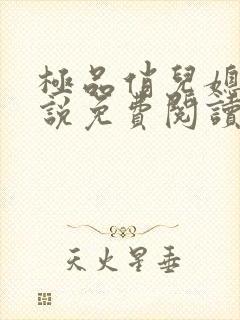 極品俏兒媳
說免費閱讀
天火星垂